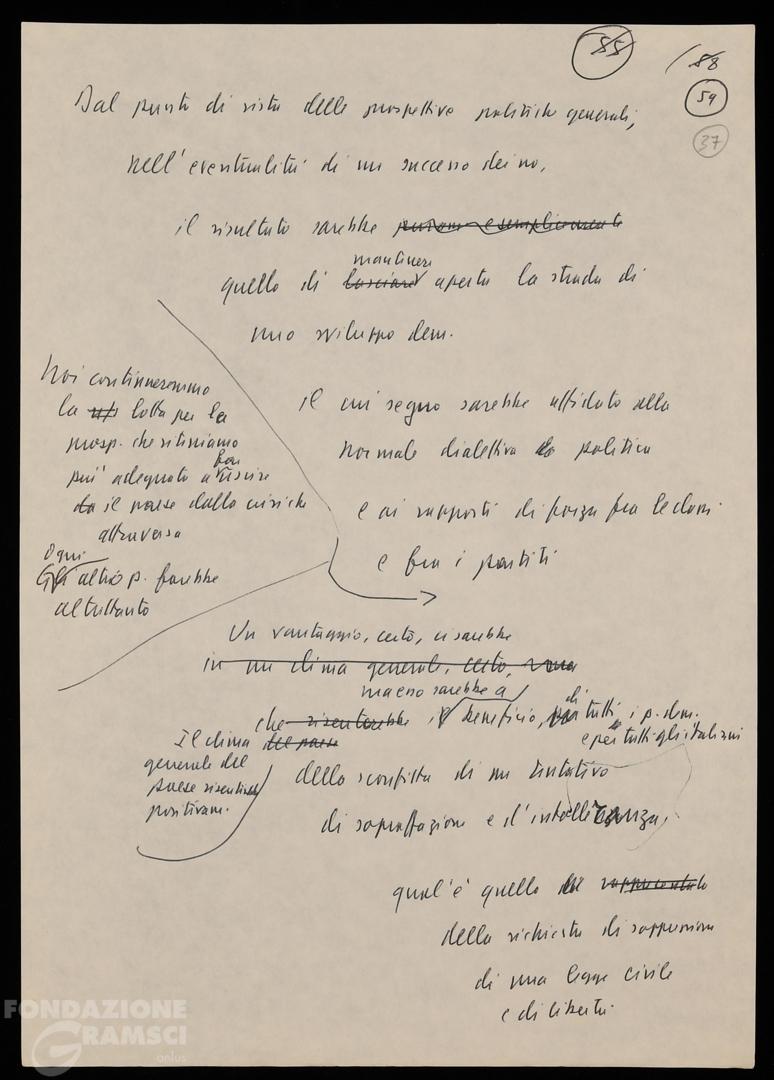 55
58
59
37
Dal punto di vista delle prospettive politiche generali,
nell'eventualità di un successo dei no,
il risultato sarebbe puramente e semplicemente
mantenere
quello di lasciare aperta la strada di
uno sviluppo dem.
Noi continueremmo
la lotta per la
prosp. che riteniamo
più adeguata a far uscire
il paese dalla crisi che
attraversa
Ogni
altro p. farebbe
altrettanto
il cui segno sarebbe affidato alla
normale dialettica politica
e ai rapporti di forza fra le classi
e fra i partiti
Un vantaggio, certo, ci sarebbe
in un clima generale, certo, una
ma esso sarebbe a
che risentirebbe il beneficio, di tutti i p. dem.
e per tutti gli italiani
Il clima del paese
generale del
paese risentirebbe
positivam.
della sconfitta di un tentativo
di sopraffazione e d'intolleranza,
qual'è quello rappresentato
della richiesta di soppressione
di una legge civile
e di libertà.
FONDAZIONE
GRAMSCI
onlus